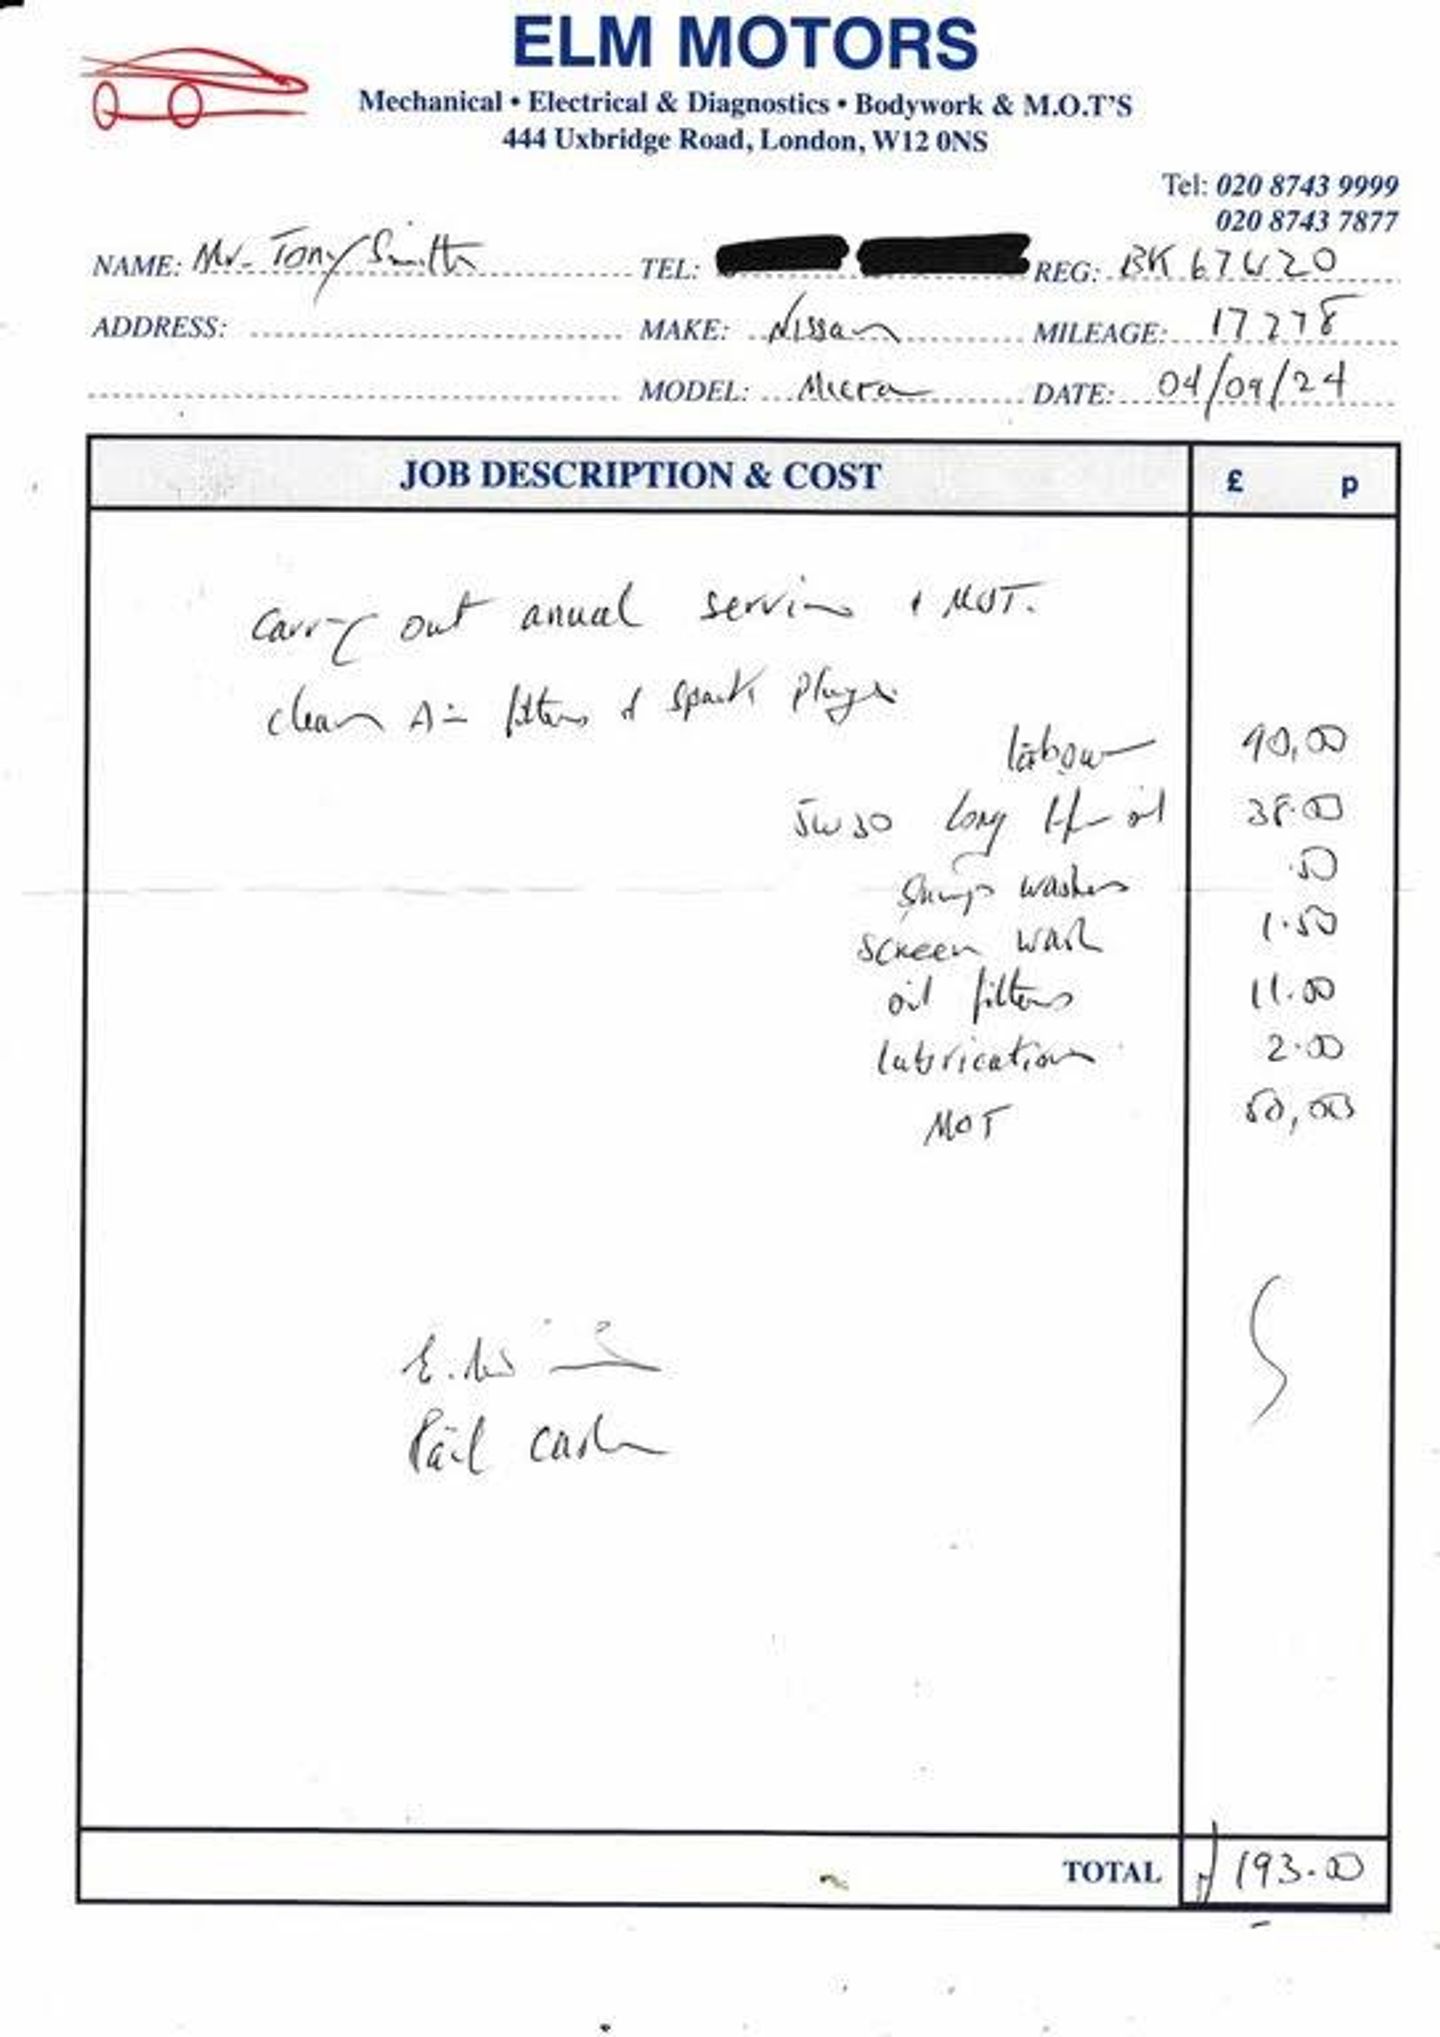 ELM MOTORS
Mechanical • Electrical & Diagnostics • Bodywork & M.O.T'S
444 Uxbridge Road, London, W12 0NS
Tel: 020 8743 9999
020 8743 7877
NAME: Mr. Tony Smith TEL: REG: BK67
ADDRESS: MAKE: Nissan MILEAGE: 17278
MODEL: Micra DATE: 04/09/24
JOB DESCRIPTION & COST £ p
Carry out anual service & MOT.
clean Air filters & spark plugs
labour 90,00
5W30 long life oil 38.00
Sump washers .50
screen wash 1.50
oil filters 11.00
lubrication 2.00
MOT 50,00
Paid cash
TOTAL £193.00